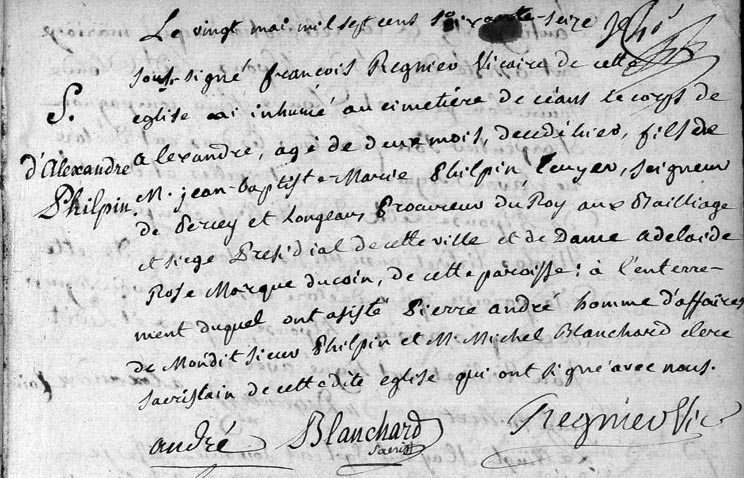 Le vingt mai mil sept cens soixante-seize
sous-signé françois Regnier Vicaire de cette
S.
eglise ai inhumé au cimetière de céans le corps de
d'Alexandre
Philpin.
alexandre, agé de deux mois, decedé hier, fils de
M. jean-baptiste Marie Philpin, Ecuyer, seigneur
de Percey et Longeau, Procureur du Roy aux Bailliage
et siege Presidial de cette ville et de Dame adelaide
Rose Marque ducoin, de cette paroisse: à l'enterre-
ment duquel ont asisté Pierre andré homme d'affaires
de Mondit sieur Philpin et Mr. Michel Blanchard clerc
sacristain de cette dite eglise qui ont signé avec nous.
andré Blanchard Regnier Vic
sacrist